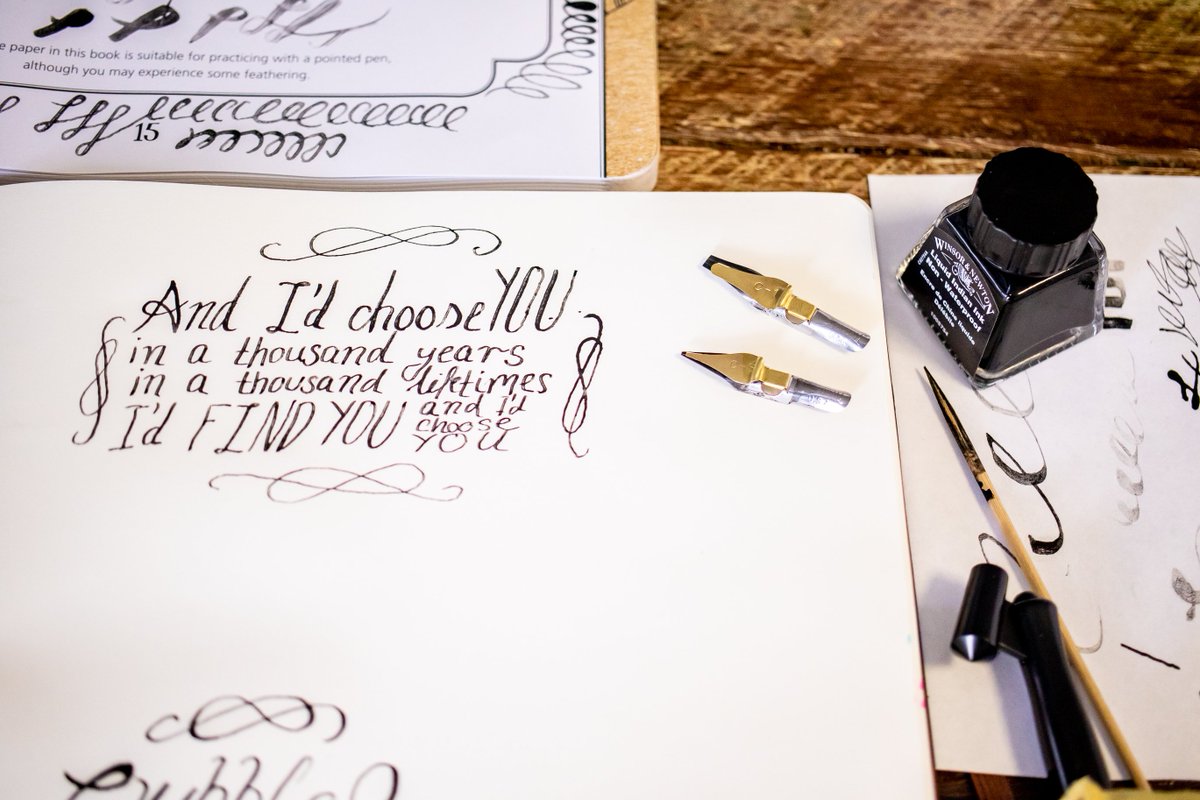 paper in this book is suitable for practicing with a pointed pen,
although you may experience some feathering.
15
And I'd choose YOU
in a thousand years
in a thousand lifetimes
I'd FIND YOU and I'd
choose
YOU
WINSOR & NEWTON
Liquid Indian Ink
Non - Waterproof
Encre de Chine liquide